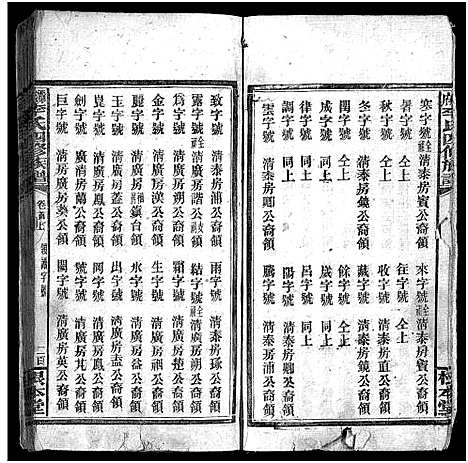 李氏四修族譜
寒字號 清泰房賓公裔領 來字號 清泰房賓公裔領
暑字號 仝上 往字號 仝上
秋字號 仝上 收字號 清泰房直公裔領
冬字號 清泰房鏡公裔領 藏字號 清泰房鏡公裔領
閏字號 仝上 餘字號 仝上
成字號 同上 歲字號 同上
律字號 同上 呂字號 同上
調字號 同上 陽字號 同上
雲字號 清泰房卿公裔領 騰字號 清泰房浦公裔領
根本堂
致字號 清泰房浦公裔領 雨字號 清泰房琢公裔領
露字號 清泰房 公裔領 結字號 清泰房 公裔領
爲字號 公裔領 霜字號 公裔領
金字號 清廣房漢公裔領 生字號 清廣房 公裔領
麗字號 裔領 水字號 清廣房 公裔領
玉字號 清廣房蓋公裔領 出字號 清廣房 公裔領
崑字號 清廣房鳳公裔領 岡字號 清廣房 公裔領
劍字號 清廣房鳳公裔領 號字號 清廣房 公裔領
巨字號 清廣房葵公裔領 闕字號 清廣房英公裔領
李氏四修族譜 卷首上 領譜字號
根本堂